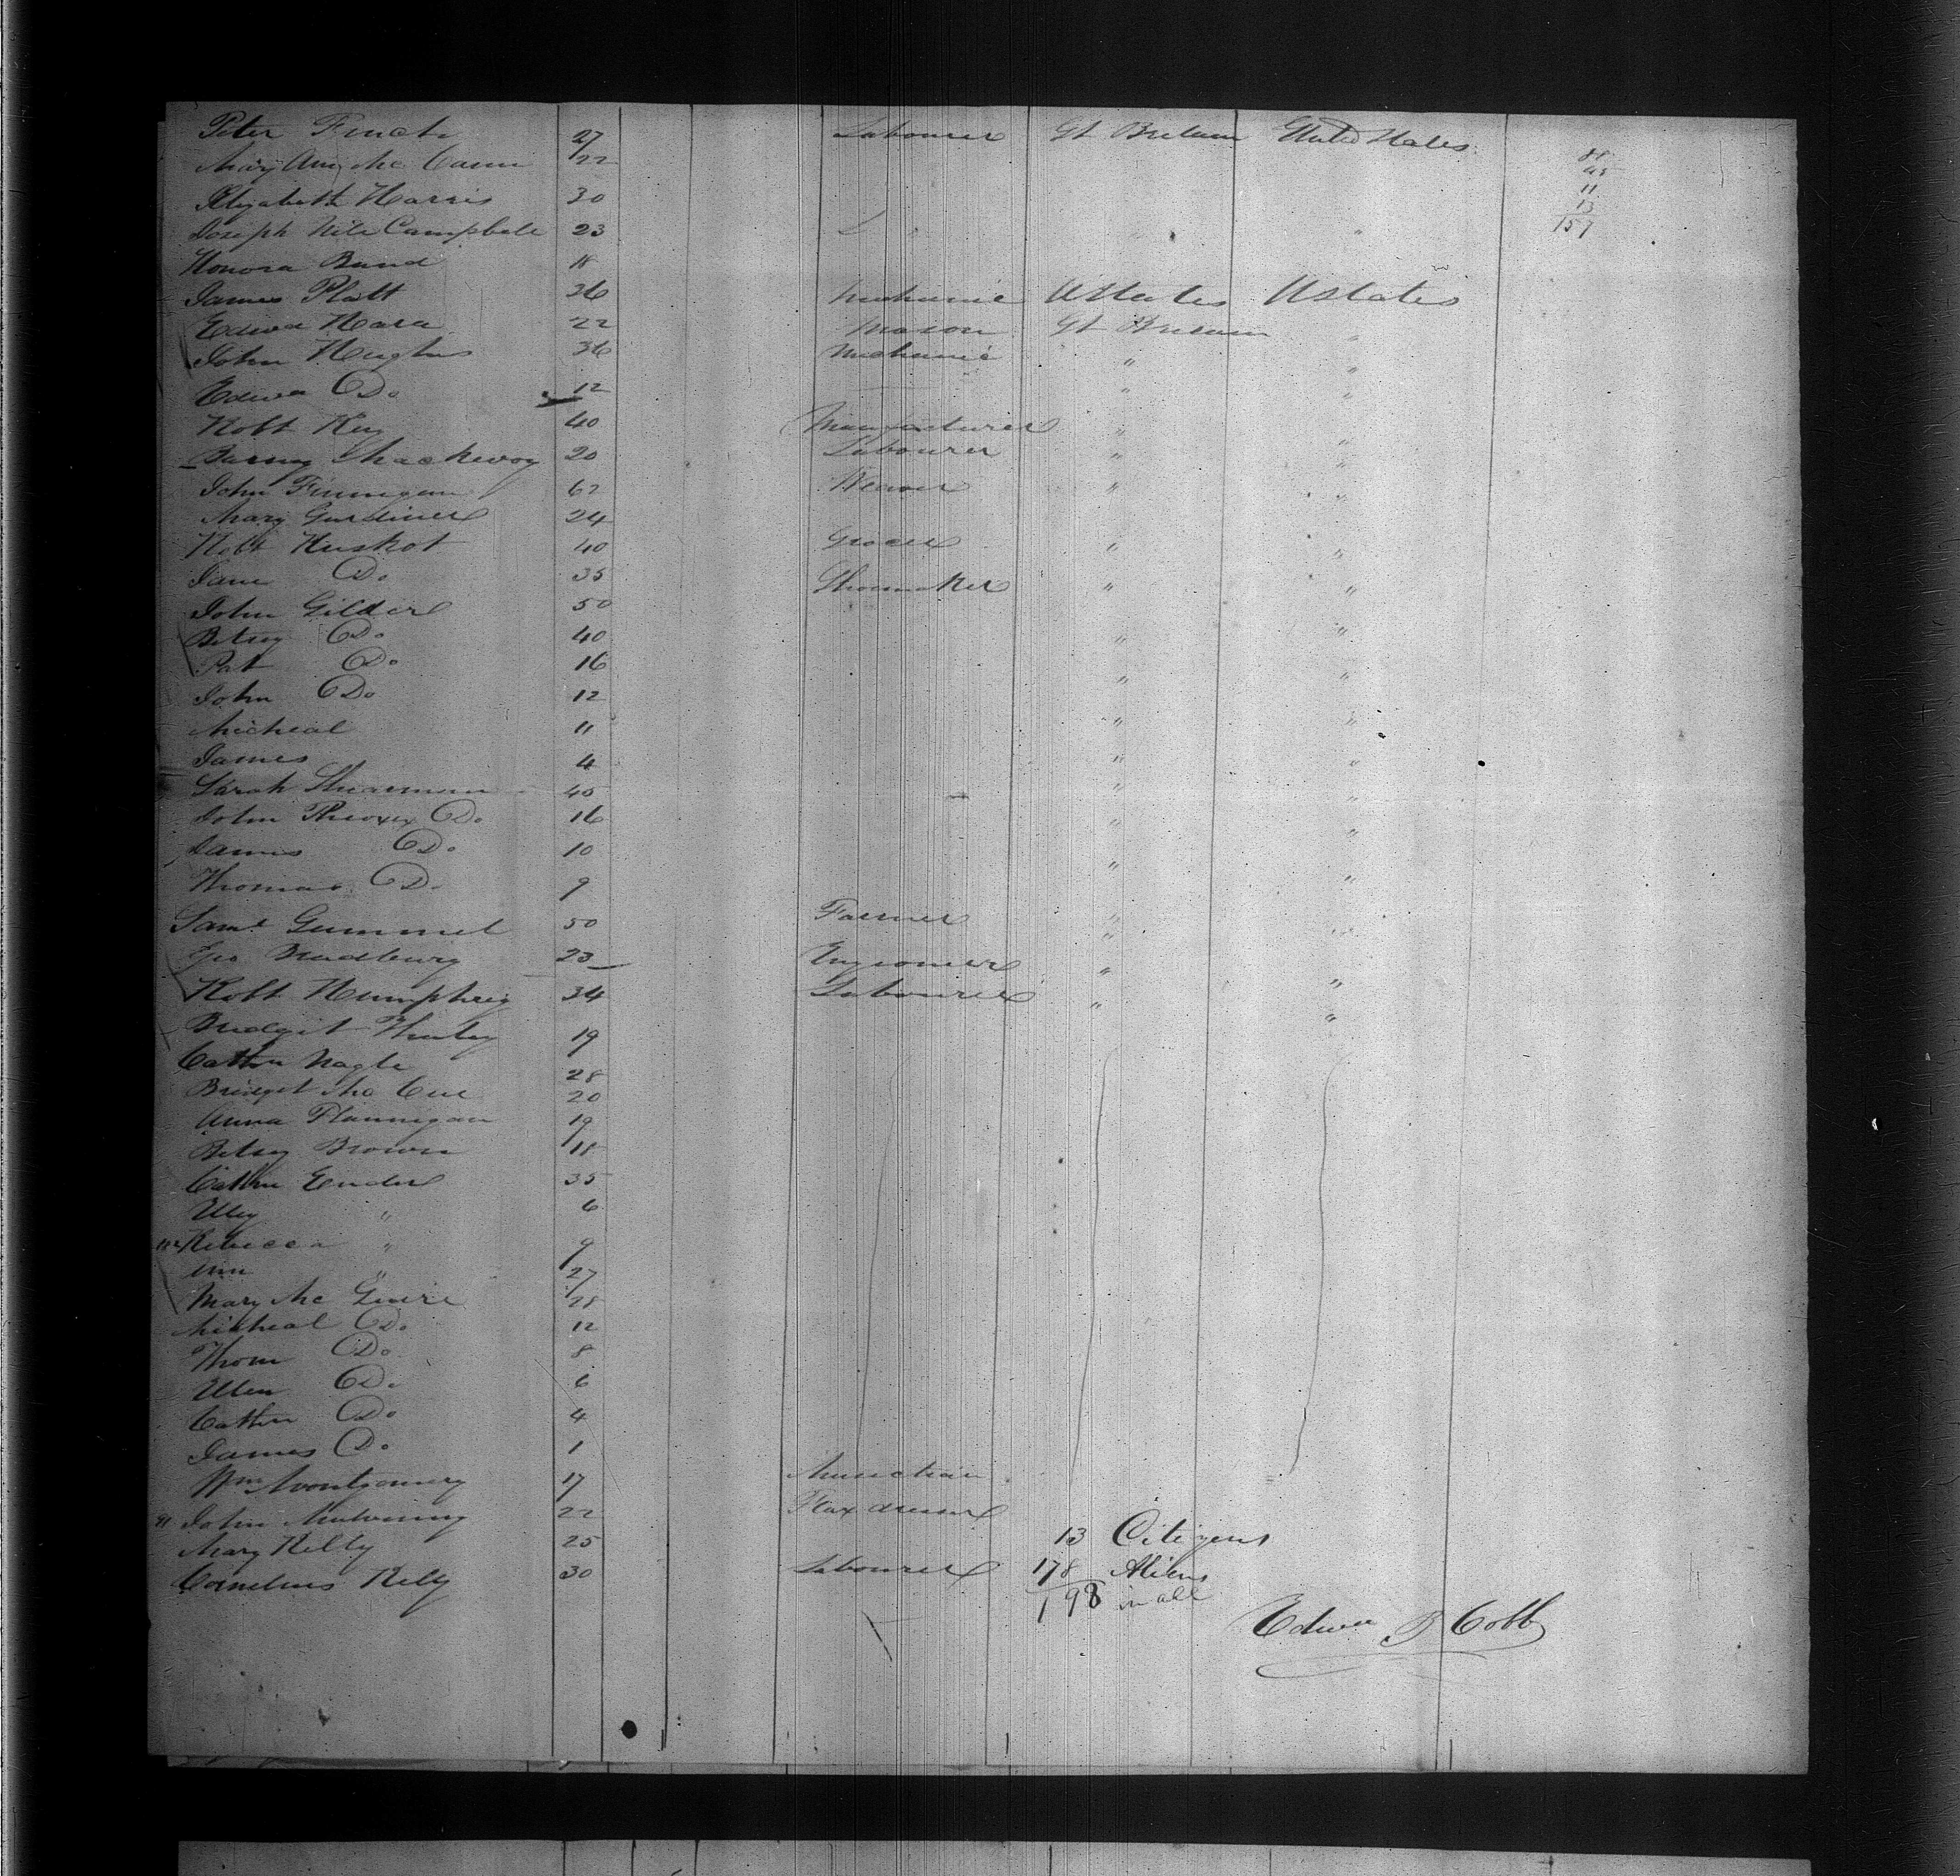 Peter Finch 27 Labourer Gt Britain United States
Mary Ann Mc Cann 22
Elizabeth Harris 30
Joseph Nile Campbell 23
Honora Bund 18
James Platt 36 Mechanic UStates UStates
Edwd Hara 22 Mason Gt Britain "
John Hughes 36 Mechanic " "
Edwd Do 12 " "
Robt Key 40 Manufacturer "
Barney Shackevoy 20 Labourer " "
John Finnigan 62 Weaver " "
Mary Gardiner 24
Robt Huskot 40 Grocer " "
Jane Do 35 Shoemaker " "
John Gilder 50
Betsy Do 40 " "
Pat Do 16
John Do 12 " "
Micheal 11 " "
James 4 " "
Sarah Shearman 45 " "
John Do 16 " "
James Do 10 "
Thomas Do 9 "
Saml Gummel 50 Farmer "
Geo Bradbury 23 Engioneer "
Robt Humphrey 34 Labourer " "
Bridgit 19
Cathn Nagle 28
Bridget Mc Cue 20
Anna Flannigan 19
Betsy Brown 18
Cathn Ender 35
" 6
Rebecca " 9
Ann " 27
Mary Mc Guire 28
Micheal Do 12
Thom Do 8
Ellen Do 6
Cathn Do 4
James Do 1
Wm Montgomery 17 Musictian
John 22 Flax dresser
Mary Kelly 25
Cornelius Kelly 30 Labourer
11
13
157
13 Citizens
178 Aliens
198 in all
Edwd B Cobb